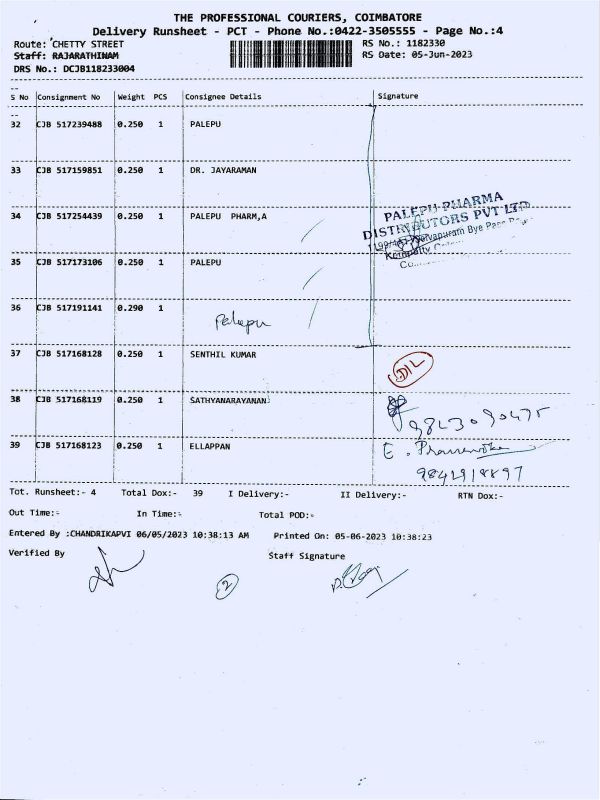 THE PROFESSIONAL COURIERS, COIMBATORE
Delivery Runsheet - PCT - Phone No.:0422-3505555 - Page No.:4
Route: CHETTY STREET RS No.: 1182330
Staff: RAJARATHINAM RS Date: 05-Jun-2023
DRS No.: DCJB118233004
S No Consignment No Weight PCS Consignee Details Signature
32 CJB 517239488 0.250 1 PALEPU
33 CJB 517159851 0.250 1 DR. JAYARAMAN
34 CJB 517254439 0.250 1 PALEPU PHARM,A
PALEPU PHARMA
DISTRIBUTORS PVT LTD
Bye Pass
35 CJB 517173106 0.250 1 PALEPU
36 CJB 517191141 0.290 1 Palepu
37 CJB 517168128 0.250 1 SENTHIL KUMAR D/L
38 CJB 517168119 0.250 1 SATHYANARAYANAN 9843090475
39 CJB 517168123 0.250 1 ELLAPPAN E.
9842918897
Tot. Runsheet:- 4 Total Dox:- 39 I Delivery:- II Delivery:- RTN Dox:-
Out Time:- In Time:- Total POD:-
Entered By :CHANDRIKAPVI 06/05/2023 10:38:13 AM Printed On: 05-06-2023 10:38:23
Verified By Staff Signature
2